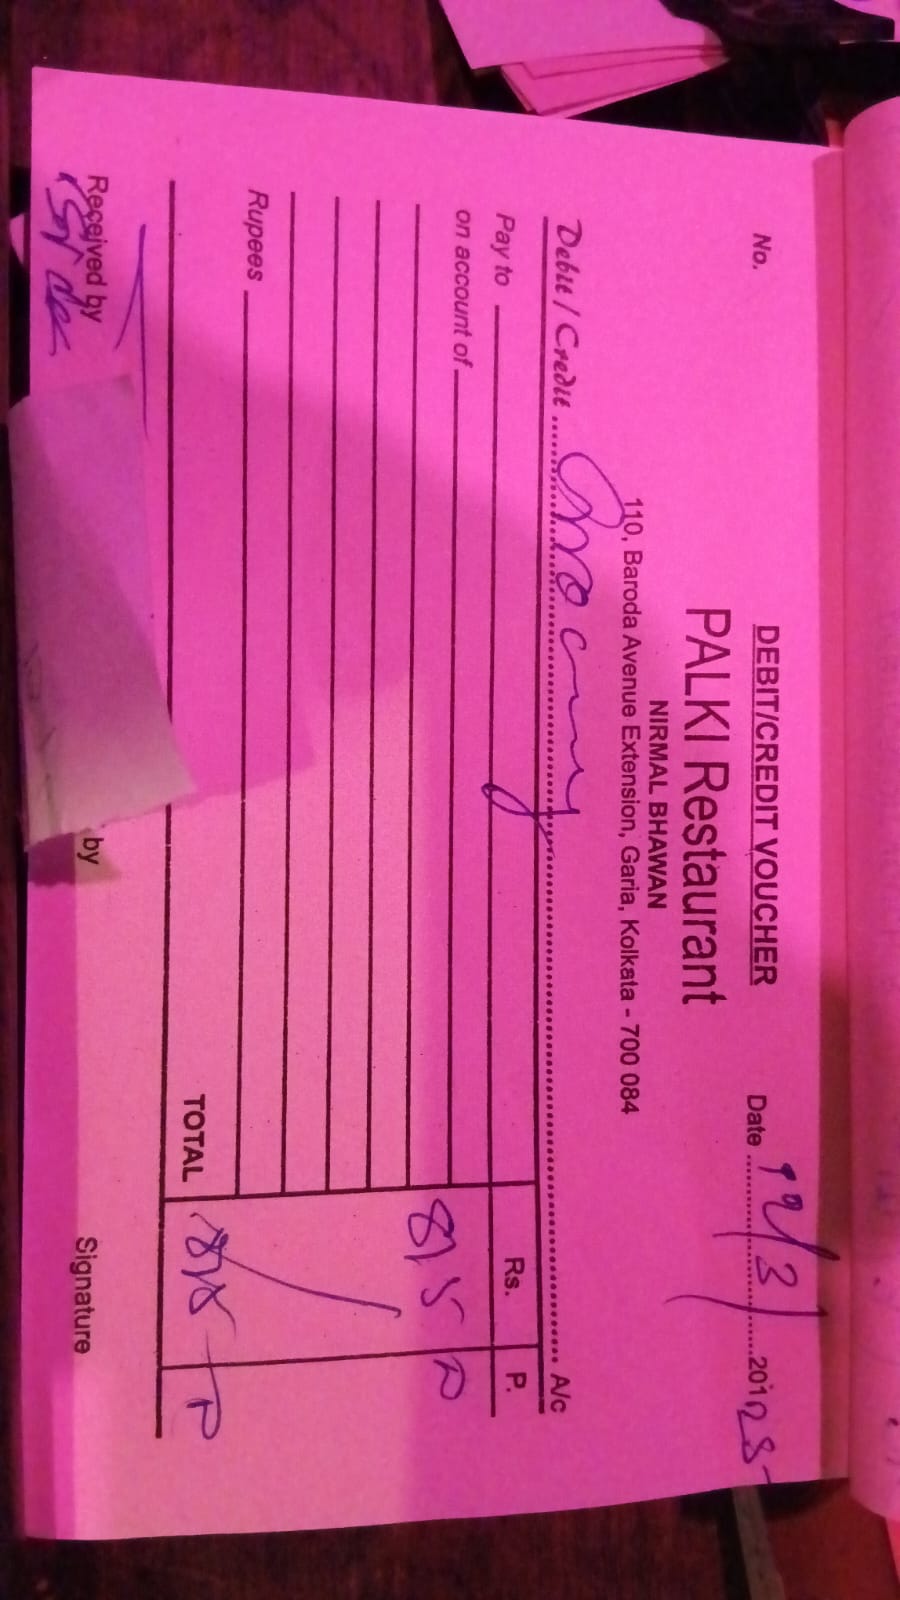 DEBIT/CREDIT VOUCHER
No. Date 12/3/ 201025
PALKI Restaurant
NIRMAL BHAWAN
110, Baroda Avenue Extension, Garia, Kolkata - 700 084
Debit / Credit Grocery A/c
Pay to Rs. P.
on account of
815
Rupees
TOTAL 815
Received by by Signature